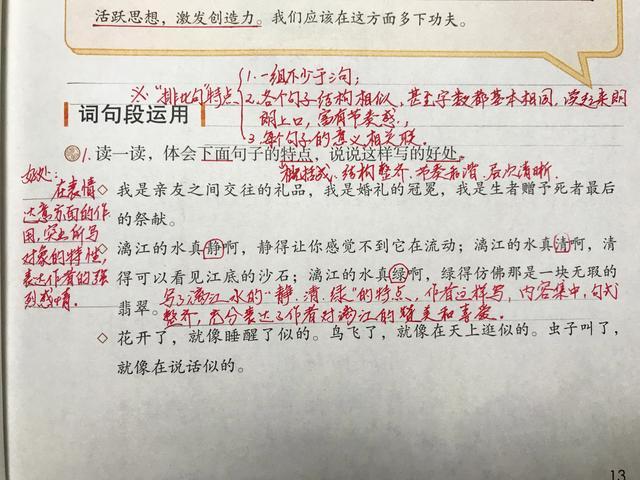 活跃思想，激发创造力。我们应该在这方面多下功夫。
※“排比句”特点
1. 一组不少于三句；
2. 各个句子结构相似，甚至字数都基本相同，读起来朗
朗上口，富有节奏感；
3. 每个句子的意义相关联。
词句段运用
1. 读一读，体会下面句子的特点，说说这样写的好处。
概括成、结构整齐、节奏和谐、层次清晰.
好处：
在表情
达意方面的作
用，突出所写
对象的特性，
表达作者的强
烈感情。
◇ 我是亲友之间交往的礼品，我是婚礼的冠冕，我是生者赠予死者最后
的祭献。
◇ 漓江的水真静啊，静得让你感觉不到它在流动；漓江的水真清啊，清
得可以看见江底的沙石；漓江的水真绿啊，绿得仿佛那是一块无瑕的
翡翠。
写了漓江水的“静、清、绿”的特点，作者这样写，内容集中，句式
整齐，充分表达了作者对漓江的赞美和喜爱。
◇ 花开了，就像睡醒了似的。鸟飞了，就像在天上逛似的。虫子叫了，
就像在说话似的。
13